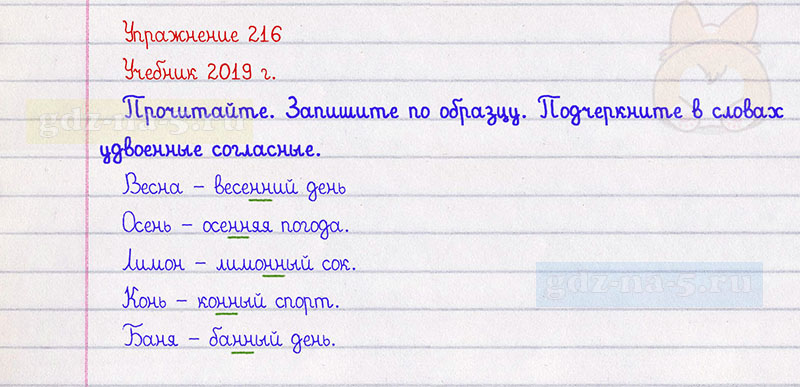 Упражнение 216
Учебник 2019 г.
Прочитайте. Запишите по образцу. Подчеркните в словах
удвоенные согласные.
Весна – весенний день
Осень – осенняя погода.
Лимон – лимонный сок.
Конь – конный спорт.
Баня – банный день.
gdz-na-5.ru
gdz-na-5.ru